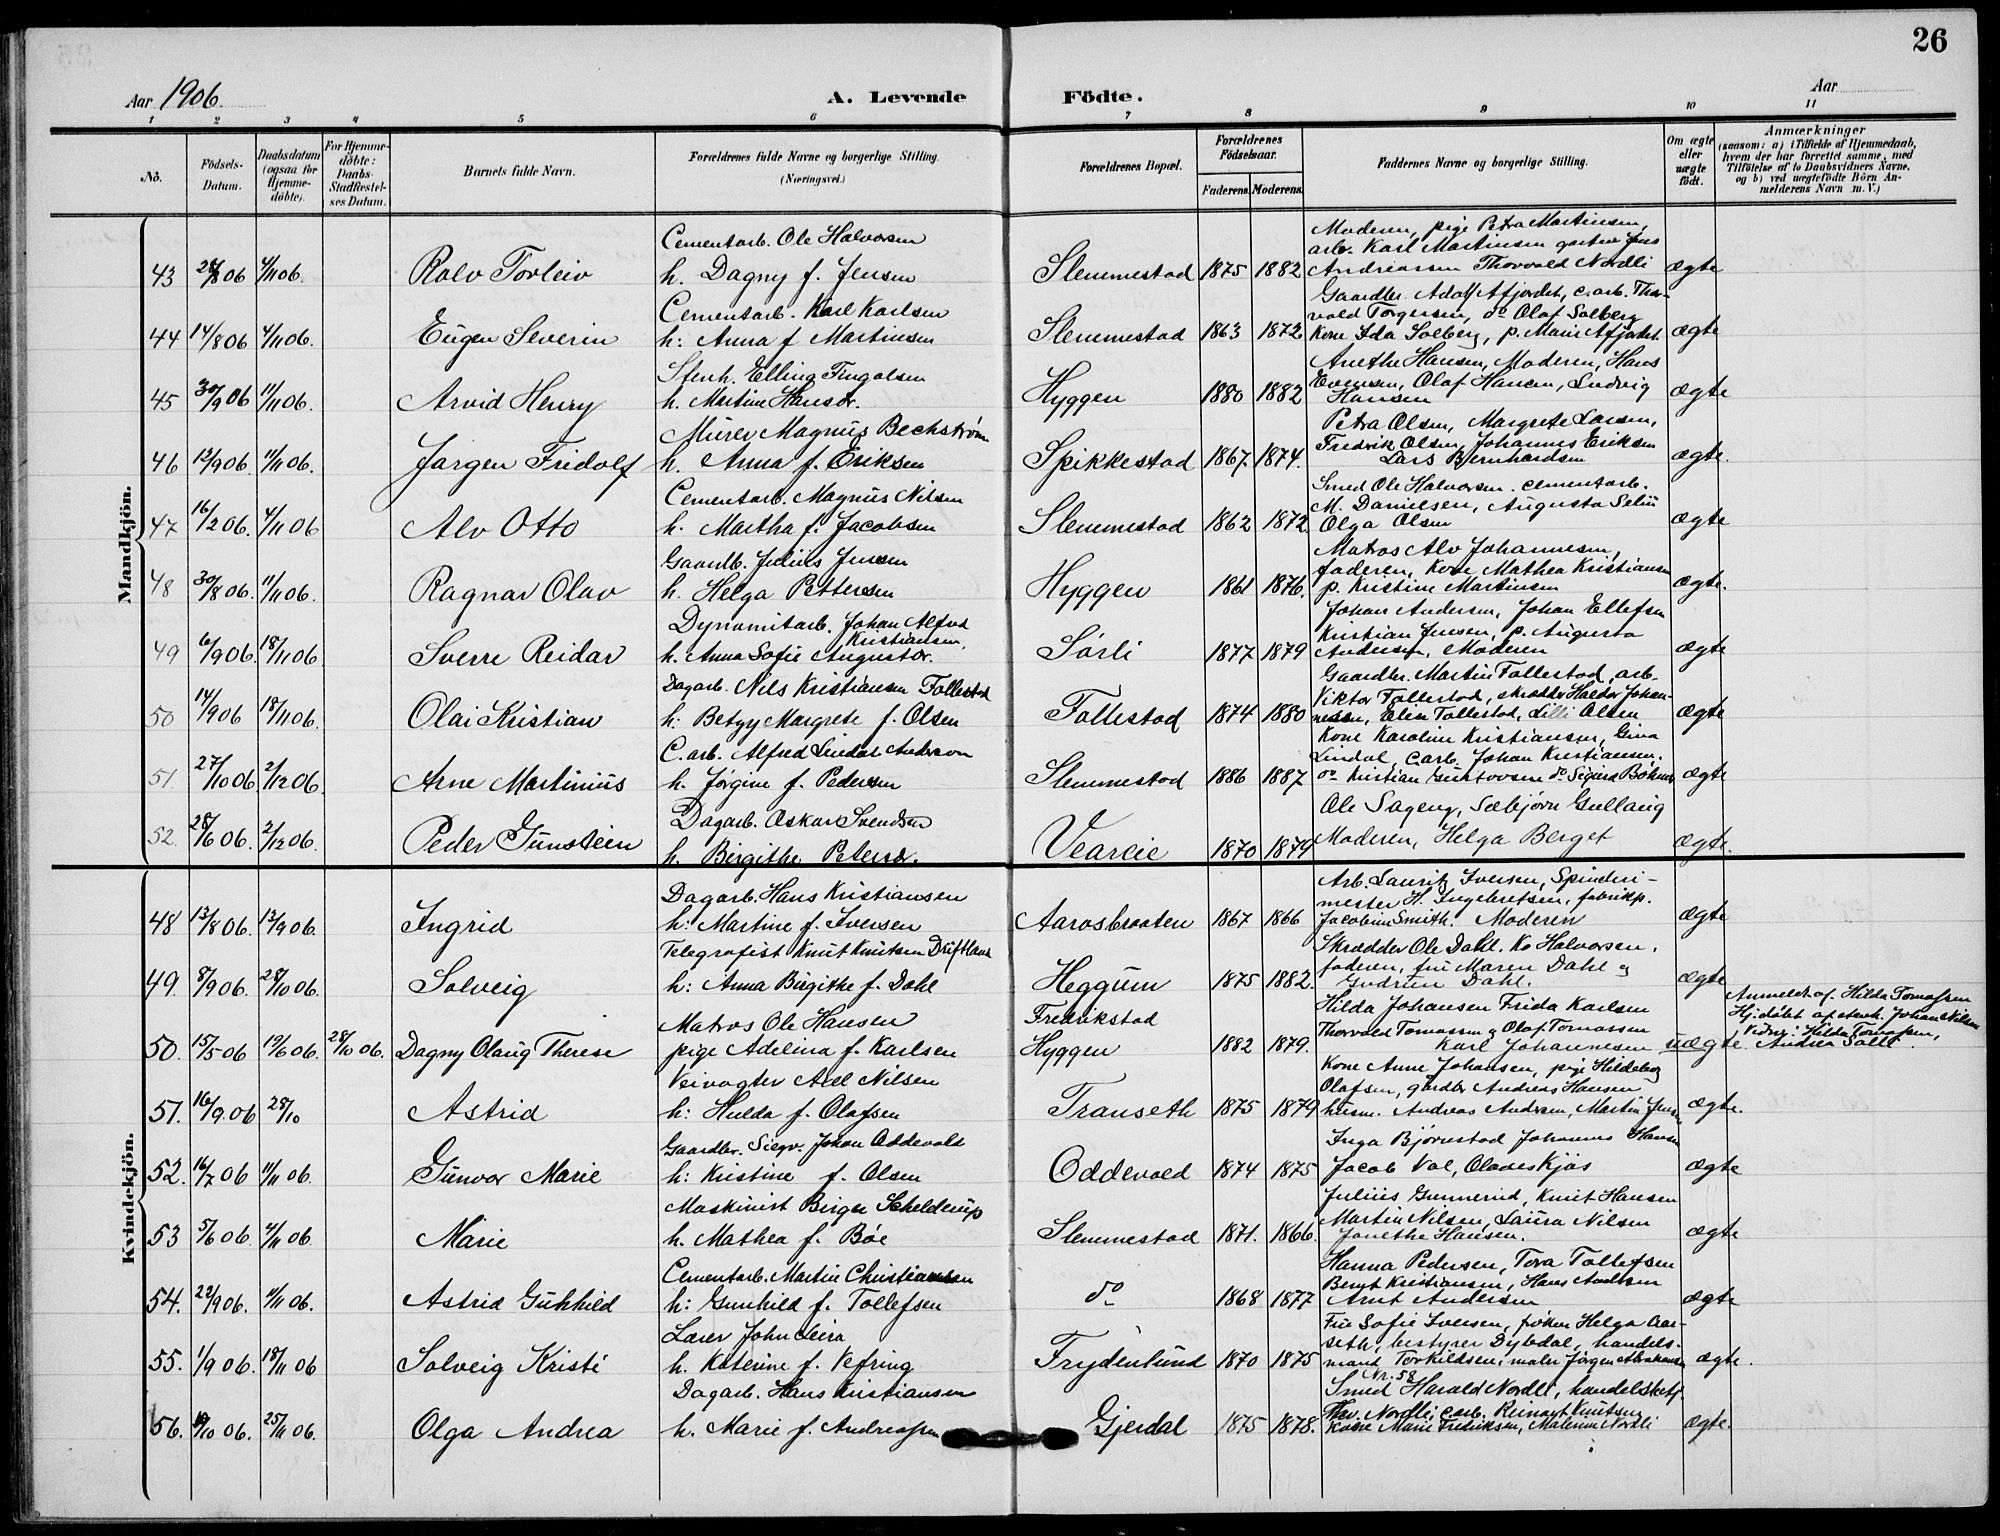 26
Aar 1906.
A. Levende Födte.
Aar
1 2 3 4 5 6 7 8 9 10 11
No.
Födsels-Datum.
Daabsdatum (ogsaa for Hjemme-döbte).
For Hjemme-döbte: Daabs-Stadfæstel-ses Datum.
Barnets fulde Navn.
Forældrenes fulde Navne og borgerlige Stilling. (Næringsvei.)
Forældrenes Bopæl.
Forældrenes Födselsaar.
Faderens. Moderens.
Faddernes Navne og borgerlige Stilling.
Om ægte eller uægte födt.
Anmærkninger
(saasom: a) i Tilfælde af Hjemmedaab, hvem der har forrettet samme, med Tilföielse af to Daabsvidners Navne, og b) ved uægtefödte Börn An-melderens Navn m. V.)
Mandkjön.
Cementarb. Ole Halvorsen
Moderen, pige Petra Martinsen,
arb. Karl Martinsen gartner Jens
43 28/8 06 4/11 06. Rolv Torleiv h. Dagny f. Jensen Slemmestad 1875 1882 Andreassen Thorvald Nordli ægte
Cementarb. Karl Karlsen
Gaardbr. Adolf Afjordet, c.arb. Thor-
vald Torgersen, do Olaf Solberg
44 14/8 06 4/11 06. Eugen Severin h: Anna f Martinsen Slemmestad 1863 1872 Kone Ida Solberg, p. Marie Afjordet. ægte
Stenh. Elling Fingalsen
Anethe Hansen, Moderen, Hans
Evensen, Olaf Hansen, Ludvig
45 30/9 06 11/11 06. Arvid Henry h. Martine Hansdr. Hyggen 1880 1882 Hansen ægte
Murer Magnus Bechstrøm
Petra Olsen, Margrete Larsen,
Fredrik Olsen, Johannes Eriksen
46 13/9 06. 11/11 06. Jørgen Fridolf h. Anna f. Eriksen Spikkestad 1867. 1874. Lars Bjernhardsen ægte.
Cementarb. Magnus Nilsen
Smed Ole Halvorsen. cementarb.
M. Danielsen, Augusta
47 16/2 06. 4/11 06 Alv Otto h. Martha f. Jacobsen Slemmestad 1862 1872. Olga Olsen ægte
Gaardb. Julius Jensen
Matros Alv Johannesen,
faderen, Kone Mathea Kristiansen
48 30/8 06. 11/11 06. Ragnar Olav h. Helga Pettersen Hyggen 1861 1876. p. Kristine Martinsen ægte.
Dynamitarb. Johan Alfred Kristiansen,
Johan Andersen, Johan Ellefsen
Kristian Jensen, p. Augusta
49 6/9 06. 18/11 06 Sverre Reidar h. Anna Sofie Augustdr. Sørli 1877 1879 Andersen, Moderen ægte
Dagarb. Nils Kristiansen Follestad
Gaardbr. Martin Follestad, arb.
Viktor Follestad, skrædder Halvor Johan-
50 14/9 06 18/11 06. Olai Kristian h: Betzy Margrete f. Olsen Follestad 1874 1880 nessen, Elen Follestad, Lilli Olsen ægte
C. arb. Alfred Lindal Anderson
Kone Karoline Kristiansen, Gina
Lindal, C.arb. Johan Kristiansen.
51. 27/10 06 2/12 06. Arne Martinius h. Jørgine f. Pedersen Slemmestad 1886 1887 do Kristian Gustavsen do Sigurd Bøhmer ægte
Dagarb. Oskar Svendsen
Ole Sageng, Sæbjørn Gullaug
52. 28/6 06. 2/12 06. Peder Gunstein h. Birgithe Petersdr. Veareie 1870 1879 Moderen, Helga Berget ægte.
Kvindekjön.
Dagarb. Hans Kristiansen
Arb. Lauritz Iversen, Spinderi-
mester H. Ingebretsen, fabrikp.
48 13/8 06. 13/9 06. Ingrid h: Martine f. Iversen Aarosbraaten 1867 1866 Jacobine Smith. Moderen ægte
Telegrafist Knut Knutsen Driftland
Skrædder Ole Dahl. Ko Halvorsen,
faderen, fru Maren Dahl og
49. 8/9 06. 28/10 06. Solveig h: Anna Birgithe f. Dahl Heggum 1875 1882. Gudrun Dahl. ægte
Matros Ole Hansen Fredrikstad
Hilda Johansen Frida Karlsen
Thorvald Tomassen & Olaf Tomassen
Anmeldt af Hilda Tomassen
Hj.döbt af stenh. Johan Nilsen
Vidner: Hilda Tomassen,
50. 15/5 06 19/6 06. 28/10 06. Dagny Olaug Therese pige Adelina f. Karlsen Hyggen 1882 1879. Karl Johannesen uægte. Andrea
Veivogter Axel Nilsen
Kone Anne Johansen, pige Hildeborg
Olafsen, gårdbr Andreas Hansen
51. 16/9. 06 28/10 Astrid h: Hulda f. Olafsen Transeth 1875 1879 husm. Andreas Andersen, Martin Jensen ægte.
Gaardbr. Sigv. Johan Oddevald
Inga Bjørnstad Johannes Hansen
52. 16/7 06 11/11 06. Gunvor Marie h: Kristine f. Olsen Oddevald 1874 1875 Jacob Val, Olaves Kjøs ægte
Maskinist Birger Schelderup
Julius Gunnerud, Knut Hansen
Martin Nilsen, Laura Nilsen
53 5/6 06. 4/11 06. Marie h. Mathea f. Bøe Slemmestad 1871. 1866. Janethe Hansen. ægte
Cementarb. Martin Christiansen
Hanna Pedersen, Tora Tollefsen
Bernt Kristiansen, Hans Andersen
54. 22/9 06. 4/11 06. Astrid Gunhild h: Gunhild f. Tollefsen do 1868 1877 Arnt Andersen ægte
Lærer John Leira
Fru Sofie Iversen, frøken Helga Aar-
seth, bestyrer Dybdal, handels-
55. 1/9 06. 18/11 06 Solveig Kristi h. Katerine f. Vefring Frydenlund 1870 1875 mand Torkildsen, maler Jørgen Abrahamsen ægte.
Nr. 58
Dagarb. Hans Kristiansen
Smed Harald Nordli, handelsbetj.
Nordli, c.arb. Reinart Knutsen
56. 19/10 06. 25/11 06. Olga Andrea h. Marie f. Andreassen Gjerdal 1875 1878. Kone Marie Fredriksen, Malenne Nordli ægte.